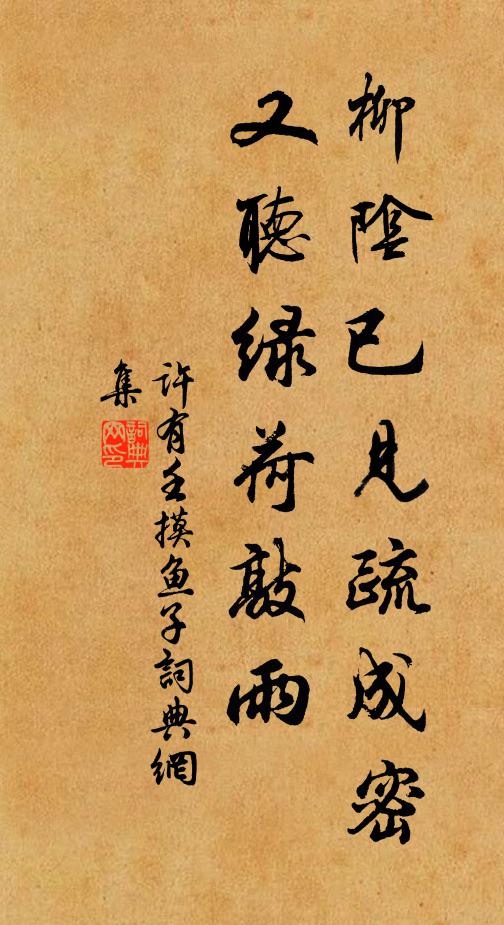 柳陰已見疏成密
又聽綠荷敲雨
許有壬摸魚子詞典網
集
詞典
网印